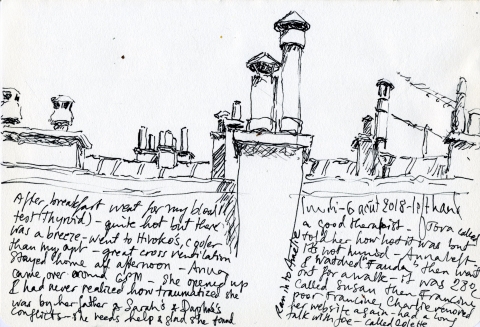 After breakfast went for my blood
test (Thyroid) - quite hot but there
was a breeze - went to Hiroko's, cooler
than my apt - great cross ventilation
Stayed home all afternoon - Annay
came over around 6PM - She opened up
I had never realized how traumatized she
was by her father & Sarah's & Daphna's
conflicts - she needs help & glad she found
Lundi - 6 août 2018 -
a good therapist - Tova called
told her how hot it was but
its not humid - Annabest
& watched Fauda, then went
out for a walk - it was 230,
Called Susan then Francine,
poor Francine, Chafre removed
her website again - had a long
talk with Joe - Called Odette
Ran into